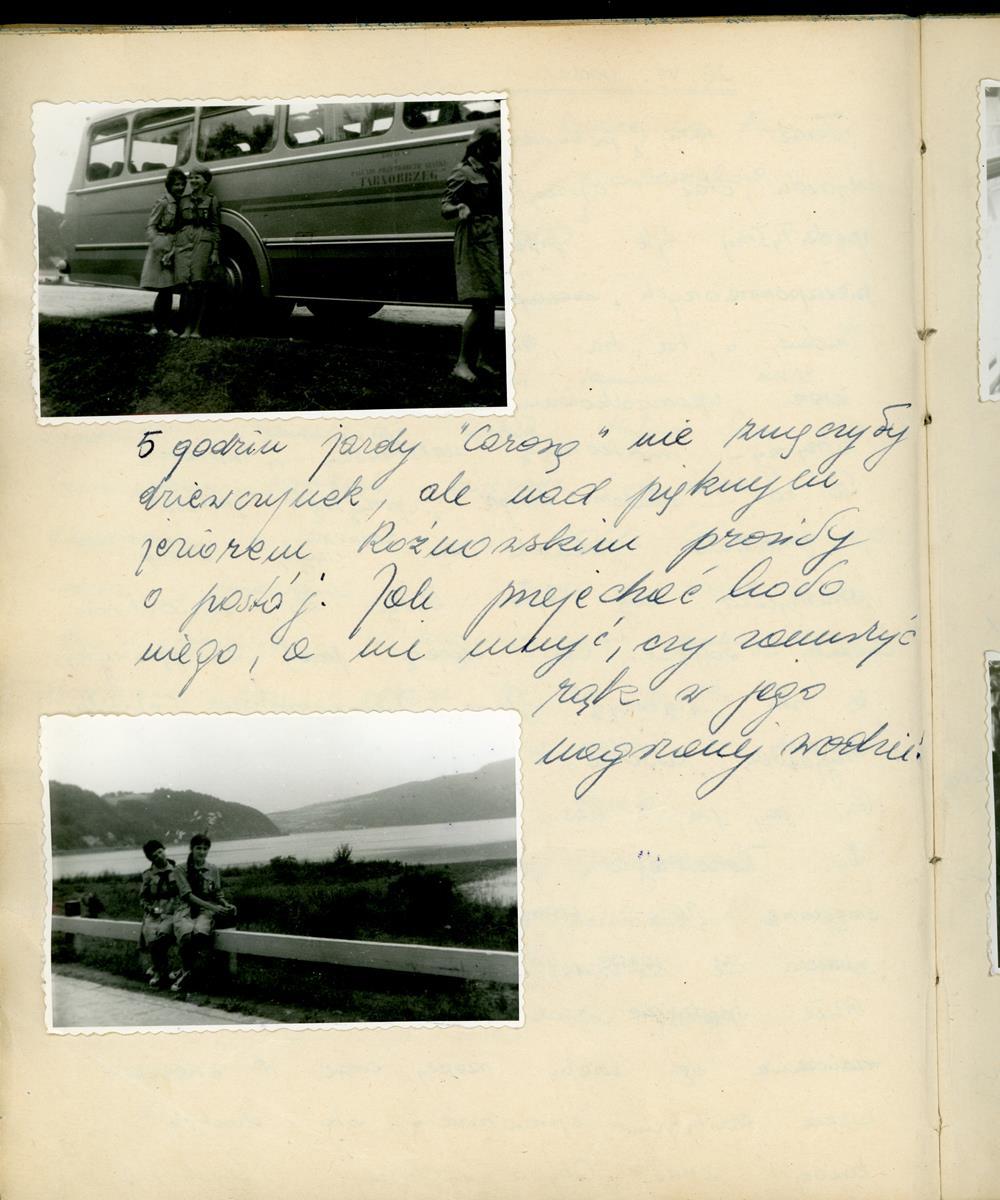 TARNOBRZEG
5 godzin jazdy "Carosą" nie zmęczyły
dziewczynek, ale nad pięknym
jeziorem Rożnowskim prosiły
o postój. Jak przejechać koło
niego, a nie umyć, czy zamoczyć
rąk w jego
nagrzanej wodzie.